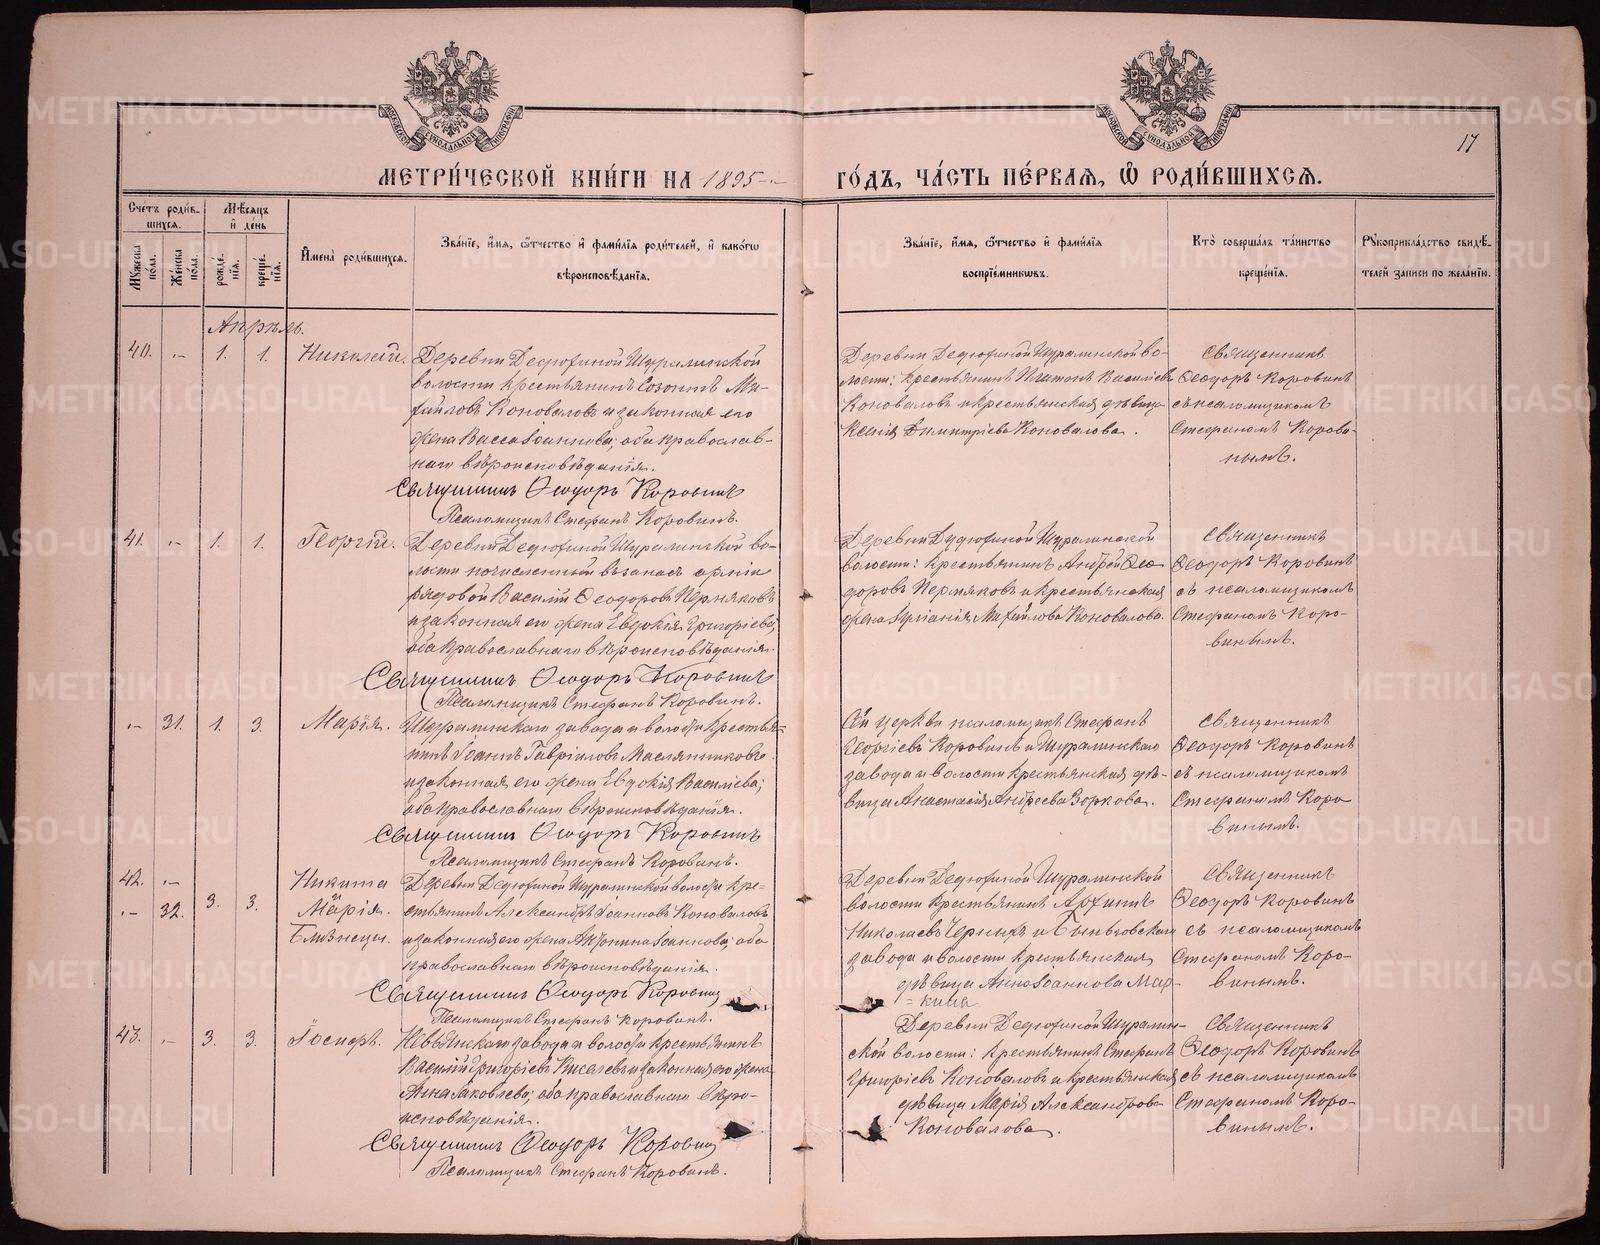 МЕТРИ́ЧЕСКОЙ КНИ́ГИ НА 1895 ГО́ДЪ, ЧА́СТЬ ПЕ́РВАЯ, Ѡ РОДИ́ВШИХСЯ.
17
Сче́тъ роди́в-
шихся.
Мѣ́сяцъ
и де́нь
Му́жеска
по́ла.
Же́нска
по́ла.
рожде́-
нїя.
креще́-
нїя.
Имена̀ роди́вшихся.
Зва́нїе, и́мя, ѻ́тчество и фами́лїя роди́телей, и како́гѡ
вѣроисповѣ́данїя.
Зва́нїе, и́мя, ѻ́тчество и фами́лїя
воспрїе́мникѡвъ.
Кто̀ соверша́лъ та́инство
креще́нїя.
Рꙋкоприкла́дство свидѣ́-
телей за́писи по жела́нїю.
Апрѣль.
40. 1. 1. Николай.
Деревни Дедюфиной Шуралинской
волости крестьянинъ Созонтъ Ми-
хайловъ Коноваловъ и законная его
жена Васса Іоаннова; оба православ-
наго вѣроисповѣданія.
Священникъ Ѳеодоръ Коровинъ
Псаломщикъ Стефанъ Коровинъ.
Деревни Дедюфиной Шуралинской во-
лости: крестьянинъ Платонъ Васильевъ
Коноваловъ и крестьянская дѣвица
Ксенія Димитріева Коновалова.
Священникъ
Ѳеодоръ Коровинъ
съ псаломщикомъ
Стефаномъ Корови-
нымъ.
41. 1. 1. Георгій.
Деревни Дедюфиной Шуралинской во-
лости зачисленный въ запасъ арміи
рядовой Василій Ѳеодоровъ Пермяковъ
и законная его жена Евдокія Григоріева;
оба православнаго вѣроисповѣданія.
Священникъ Ѳеодоръ Коровинъ
Псаломщикъ Стефанъ Коровинъ.
Деревни Дедюфиной Шуралинской
волости: крестьянинъ Андрей Ѳео-
доровъ Пермяковъ и крестьянская
жена Михайлова Коновалова.
Священникъ
Ѳеодоръ Коровинъ
съ псаломщикомъ
Стефаномъ Коро-
винымъ.
31. 1. 3. Марія.
Шуралинскаго завода и волости крестья-
нинъ Іоаннъ Гавріиловъ Маслянниковъ
и законная его жена Евдокія Васильева;
оба православнаго вѣроисповѣданія.
Священникъ Ѳеодоръ Коровинъ
Псаломщикъ Стефанъ Коровинъ.
Сей церкви псаломщикъ Стефанъ
Георгіевъ Коровинъ и Шуралинскаго
завода и волости крестьянская дѣ-
вица Анастасія Андреева Зоркова.
Священникъ
Ѳеодоръ Коровинъ
съ псаломщикомъ
Стефаномъ Коро
винымъ.
42. Никита
и
32. 3. 3. Марія.
Близнецы.
Деревни Дедюфиной Шуралинской волости кре-
стьянинъ Александръ Іоанновъ Коноваловъ
и законная его жена Антонина Іоаннова; оба
православнаго вѣроисповѣданія.
Священникъ Ѳеодоръ Коровинъ
Псаломщикъ Стефанъ Коровинъ.
Деревни Дедюфиной Шуралинской
волости крестьянинъ Архипъ
Николаевъ Черныхъ и Быньговскаго
завода и волости крестьянская
дѣвица Анна Іоаннова Мар-
=кина
Священникъ
Ѳеодоръ Коровинъ
съ псаломщикомъ
Стефаномъ Коро-
винымъ.
43. 3. 3. Іосифъ.
Невьянскаго завода и волости крестьянинъ
Василій Григоріевъ Киселевъ и законная его жена
Анна Іаковлева; оба православнаго вѣро-
исповѣданія.
Священникъ Ѳеодоръ Коровинъ
Псаломщикъ Стефанъ Коровинъ.
Деревни Дедюфиной Шуралин-
ской волости: крестьянинъ Стефанъ
Григоріевъ Коноваловъ и крестьянская
дѣвица Марія Александрова
Коновалова.
Священникъ
Ѳеодоръ Коровинъ
съ псаломщикомъ
Стефаномъ Коро-
винымъ.
METRIKI.GASO-URAL.RU